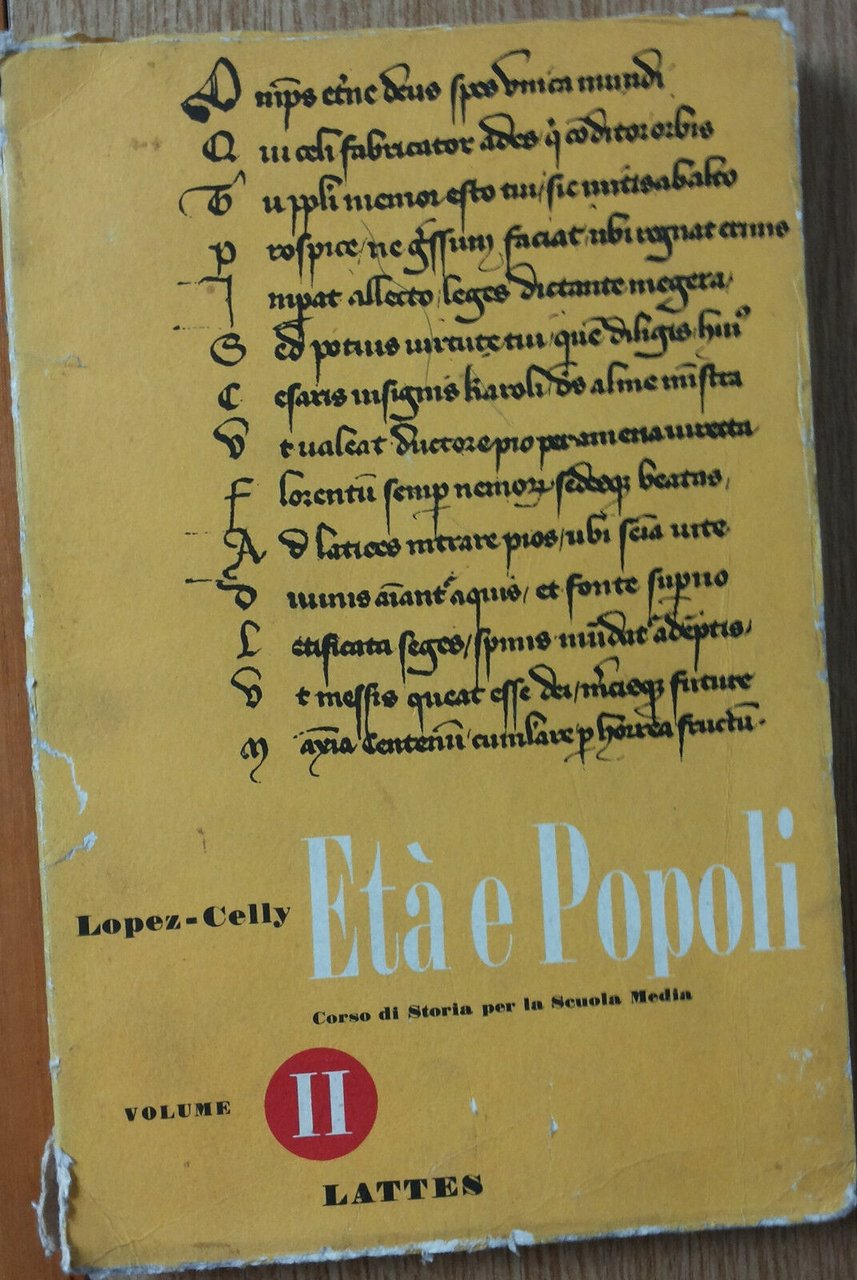 O mīps et͛ne deus spes vnica mundi
Q ui celi fabricator ades q̇ cōditor orbis
T u ppli memor esto tui / sic mitis ab alto
P rospice / ne g͛ssum faciat / ubi regnat erinis
I mpat allecto / leges dictante megera /
S ed potius uirtute tui / quē diligis hui⁹
C esaris insignis karoli / d̄s alme mīstra
V t ualeat ductore pio per amena uirecta
F lorentū semp nemorꝝ sedesqꝫ beatas /
A d latices intrare pios / ubi sēia uite
D iuinis aīant͛ aquis / et fonte supno
L etificata seges / spinis mūdat͛ adēptis /
V t messis queat esse dei / m͛cisqꝫ future
M axīa centenū cumlare p horrea fructū ·
Lopez-Celly Età e Popoli
Corso di Storia per la Scuola Media
VOLUME II
LATTES